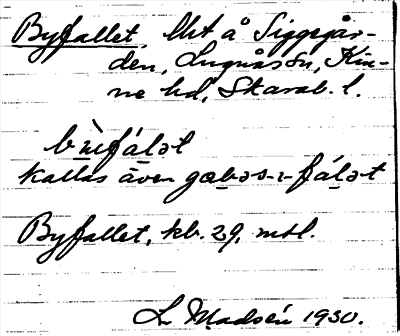 Byfallet, lht å Siggagår-
den, Lugnås sn, Kin-
ne hd, Skarab. l.
bỳfálət
kallas även
Byfallet, kb. 29, mtl.
L. Madsén 1930.